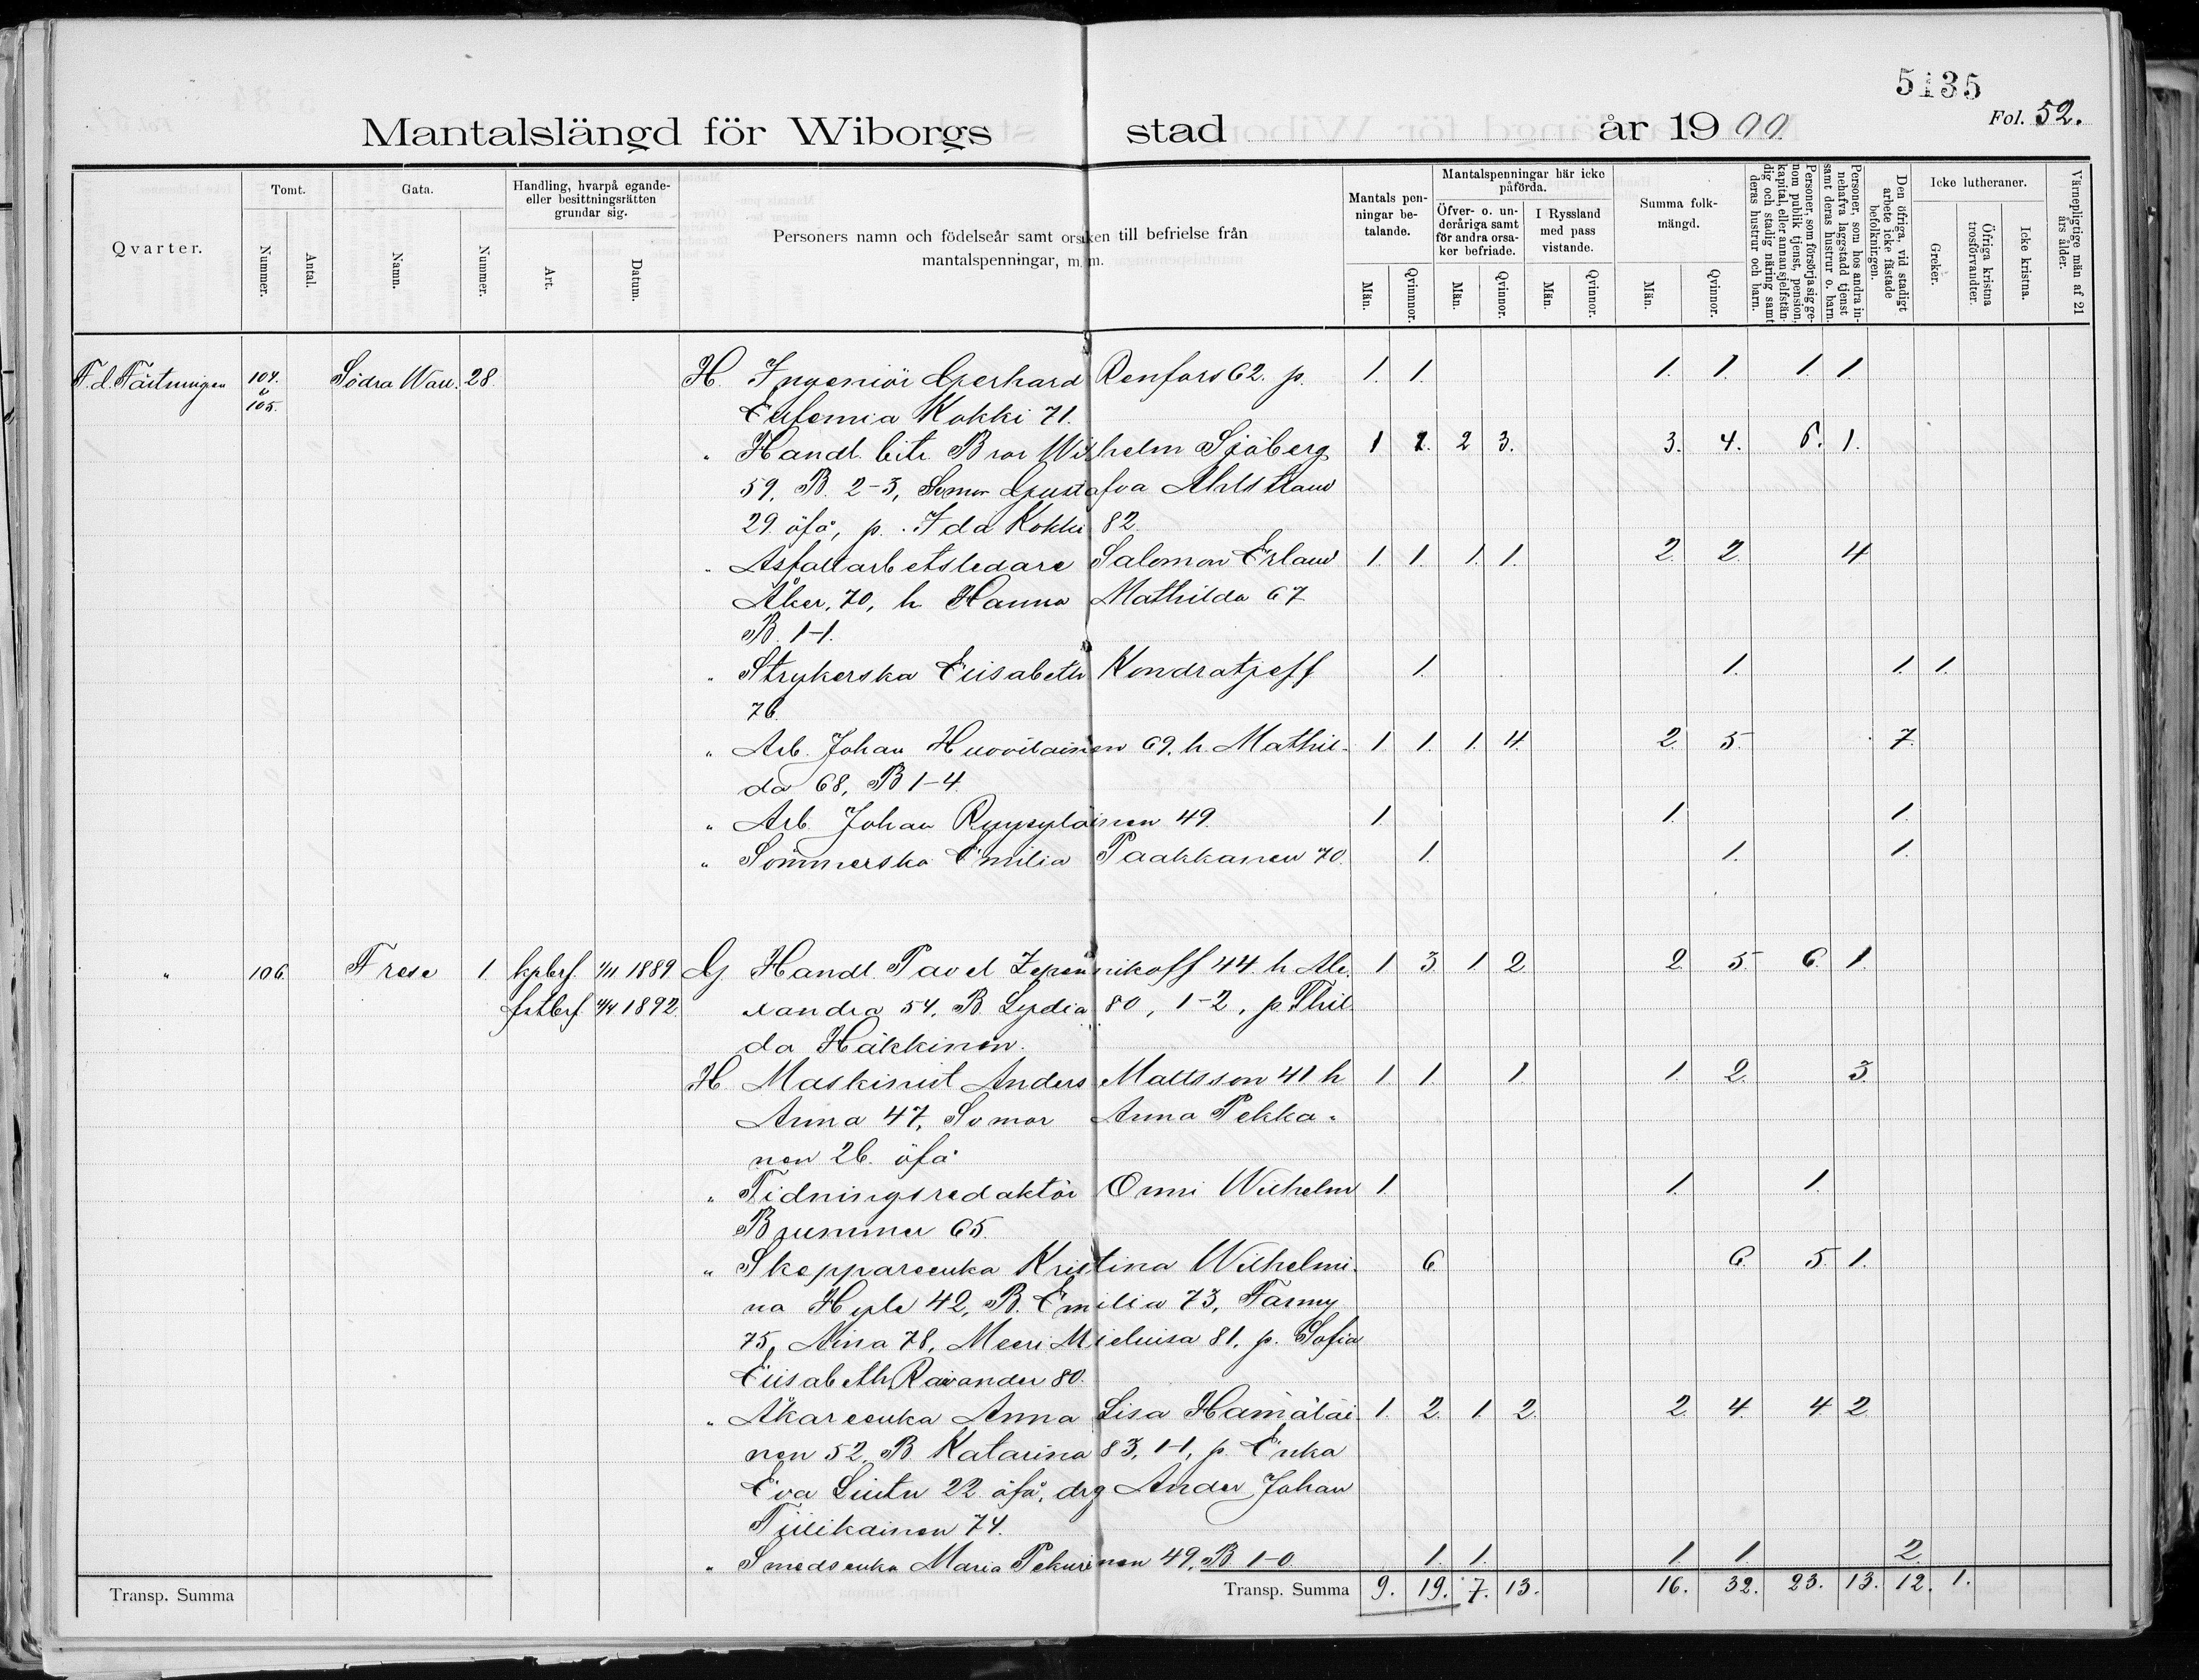 5135
Mantalslängd för Wiborgs stad år 1900
Fol. 52.
Qvarter.
Tomt.
Nummer.
Antal.
Gata.
Namn.
Nummer.
Handling, hvarpå egande- eller besittningsrätten grundar sig.
Art.
Datum.
Personers namn och födelseår samt orsaken till befrielse från mantalspenningar, m. m.
Mantals penningar betalande.
Män.
Qvinnor.
Mantalspenningar här icke påförda.
Öfver- o. underåriga samt för andra orsaker befriade.
Män.
Qvinnor.
I Ryssland med pass vistande.
Män.
Qvinnor.
Summa folkmängd.
Män.
Qvinnor.
Personer, som försörja sig genom publik tjenst, pension, kapital, eller annan sjelfständig och stadig näring samt deras hustrur och barn.
Personer, som hos andra innehafva laggstadd tjenst samt deras hustrur o. barn.
Den öfriga, vid stadigt arbete icke fästade befolkningen.
Icke lutheraner.
Greker.
Öfriga kristna trosförvandter.
Icke kristna.
Värnepligtige män af 21 års ålder.
F.d. Fästningen 104. å 105. Södra Wall. 28. H. Ingeniör Gerhard Renfors 62. p. 1. 1. 1. 1. 1. 1.
Eufemia Kokki 71.
" Handl. bitr. Bror Wilhelm Sjöberg 1 2. 2 3. 3. 4. 6. 1.
59, B. 2-3, Svmor Gustafva Ahlstrand
29. öfå, p. Ida Kokki 82.
" Asfaltarbetsledare Salomon Erland 1. 1. 1. 1. 2. 2. 4
Åker, 70, h. Hanna Mathilda 67
B. 1-1.
" Strykerska Elisabeth Kondratjeff 1. 1. 1. 1.
76.
" Arb. Johan Huovilainen 69. h. Mathil- 1. 1. 1. 4. 2. 5. 7.
da 68, B 1-4.
" Arb. Johan Ryyryläinen 49. 1. 1. 1.
" Sömmerska Emilia Paakkanen 70. 1. 1. 1.
" 106. Frese 1. kpbrf. 1/11 1889 G. Handl. Pavel 44 h. Ale- 1 3 1. 2 2 5. 6. 1.
fstbrf. 4/4 1892. xandra 54, B. Lydia 80, 1-2, p. Thil-
da Häkkinen.
H. Maskinist Anders Mattsson 41 h 1. 1. 1. 1. 2. 3.
Anna 47, Svmor Anna Pekka-
nen 26. öfå
" Tidningsredaktör Onni Wilhelm 1. 1. 1.
Brummer 65.
" Skeppareenka Kristina Wilhelmi- 6. 6. 5. 1.
na Hyle 42, B. Emilia 73, Fanny
75, Aina 78, Meeri Mieluisa 81, p. Sofia
Elisabeth Ravander 80.
" Åkareenka Anna Lisa Hämäläi- 1. 2. 1. 2. 2. 4. 4 2
nen 52, B. Katarina 83, 1-1, p. Enka
Eva Liutu 22 öfå, drg Anders Johan
Tiilikainen 74.
" Smedsenka Maria Pekurinen 49, B 1-0 1. 1. 1. 1 2.
Transp. Summa
Transp. Summa 9. 19. 7. 13. 16. 32. 23. 13. 12. 1.